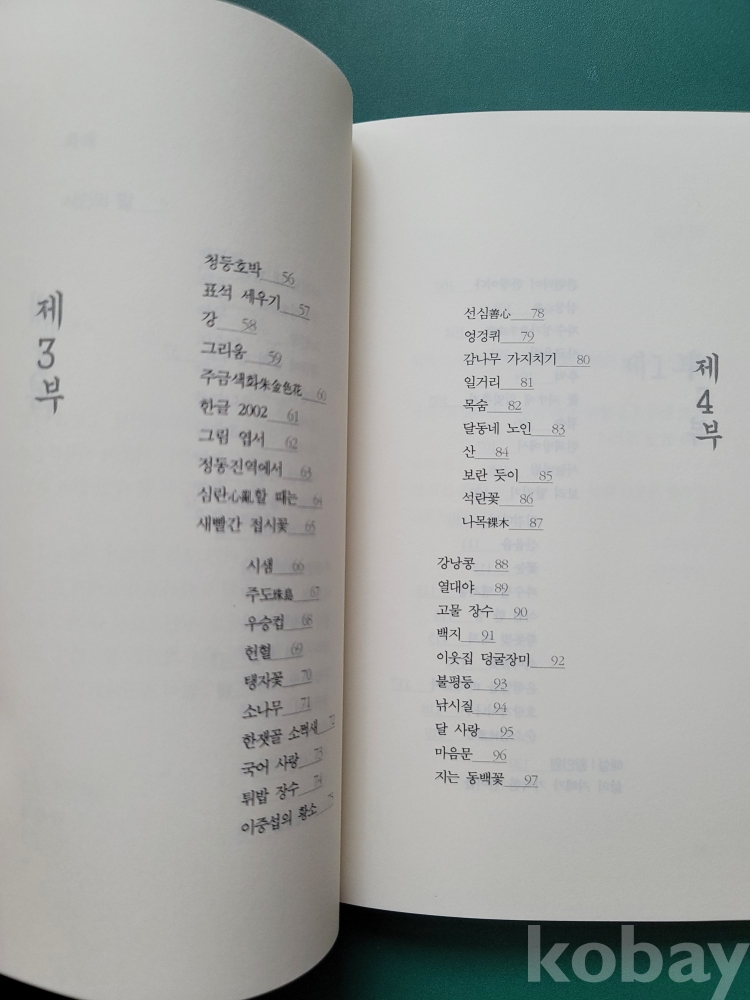 제3부
청둥호박 56
표석 세우기 57
강 58
그리움 59
주금색화朱金色花 60
한글 2002 61
그림 엽서 62
정동진역에서 63
심란心亂할 때는 64
새빨간 접시꽃 65
시샘 66
주도珠島 67
우승컵 68
헌혈 69
탱자꽃 70
소나무 71
한잿골 소쩍새
국어 사랑 73
튀밥 장수 74
이중섭의 황소
제4부
선심善心 78
엉겅퀴 79
감나무 가지치기 80
일거리 81
목숨 82
달동네 노인 83
산 84
보란 듯이 85
석란꽃 86
나목裸木 87
강낭콩 88
열대야 89
고물 장수 90
백지 91
이웃집 덩굴장미 92
불평등 93
낚시질 94
달 사랑 95
마음문 96
지는 동백꽃 97
kobay